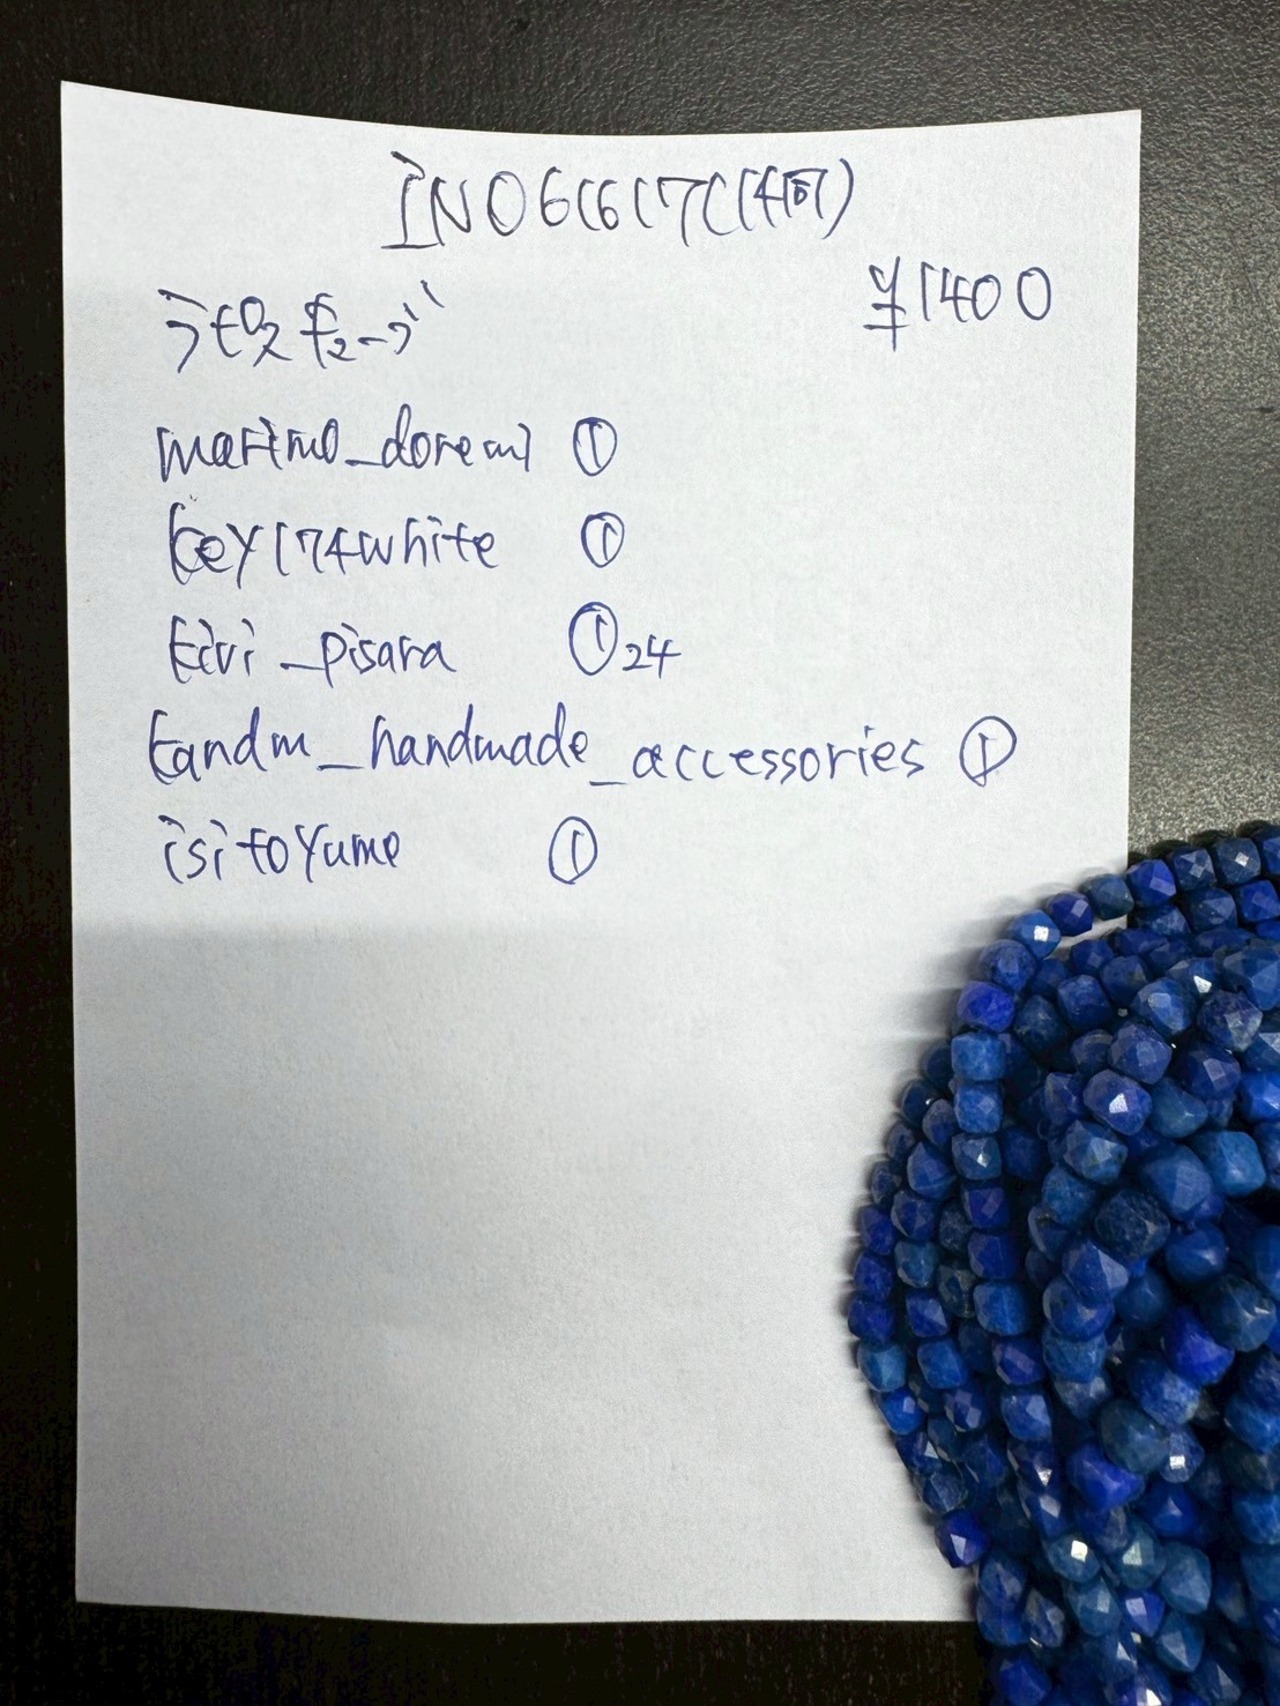 IN061617(14
ラピスキューブ ¥1400
marimo_doremi ①
key174white ①
kivi_pisara ①24
kandm_handmade_accessories ①
isitoyume ①